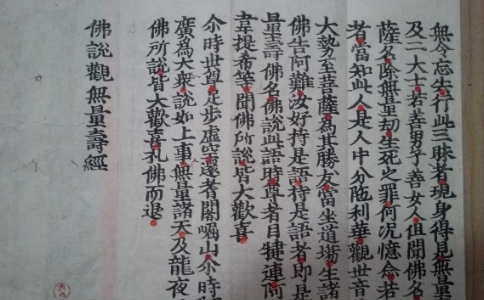 無令忘失行此三昧者現身得見無量
及二大士若善男子善女人但聞佛名
薩名除無量劫生死之罪何況憶念若
者當知此人是人中分陁利華觀世音
大勢至菩薩為其勝友當坐道場生諸
佛告阿難汝好持是語持是語者即是
量壽佛名佛說此語時尊者目揵連阿
韋提希等聞佛所說皆大歡喜
尒時世尊足步虛空還耆闍崛山尒時阿
廣為大衆說如上事無量諸天及龍夜
佛所說皆大歡喜礼佛而退
佛說觀無量壽經